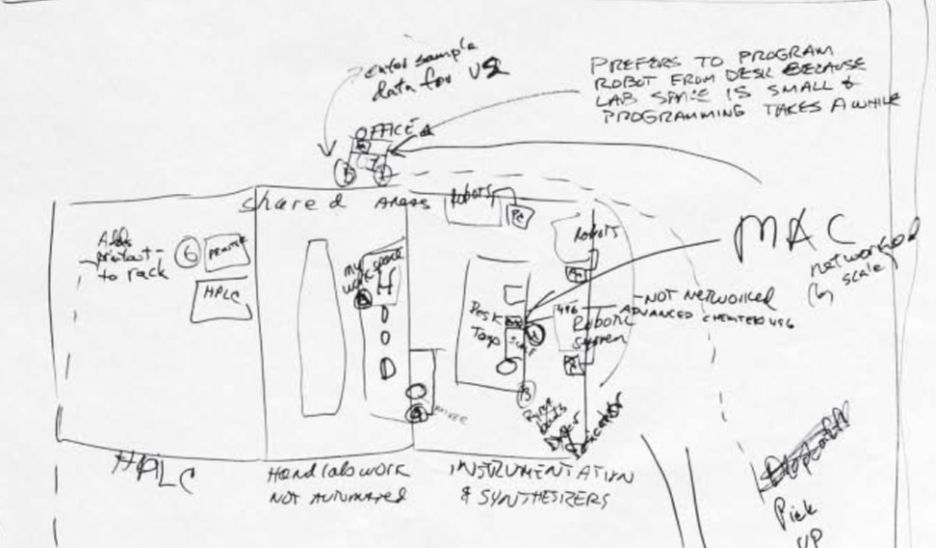 enter sample
data for US
PREFERS TO PROGRAM
ROBOT FROM DESK BECAUSE
LAB SPACE IS SMALL &
PROGRAMMING TAKES A WHILE
OFFICE
Shared AREAS
ROBOTS
PC
ROBOTS
MAC
networked
scale
Adds
printout
to rack
6
PRINTER
HPLC
my
work space
DESK
Top
SCALE
NOT NETWORKED
ADVANCED CHEMTECH 496
496
ROBOTIC
SYSTEM
HPLC
Hand lab work
NOT AUTOMATED
INSTRUMENTATION
& SYNTHESIZERS
Pick
UP